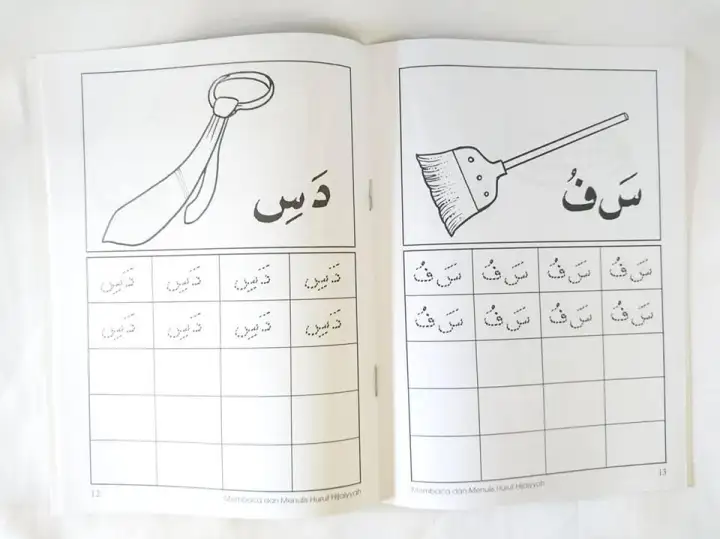 دَسِ
دَسِ دَسِ دَسِ دَسِ
دَسِ دَسِ دَسِ دَسِ
12
Membaca dan Menulis Huruf Hijaiyyah
سَ فُ
سَ فُ سَ فُ سَ فُ سَ فُ
سَ فُ سَ فُ سَ فُ سَ فُ
Membaca dan Menulis Huruf Hijaiyyah
13